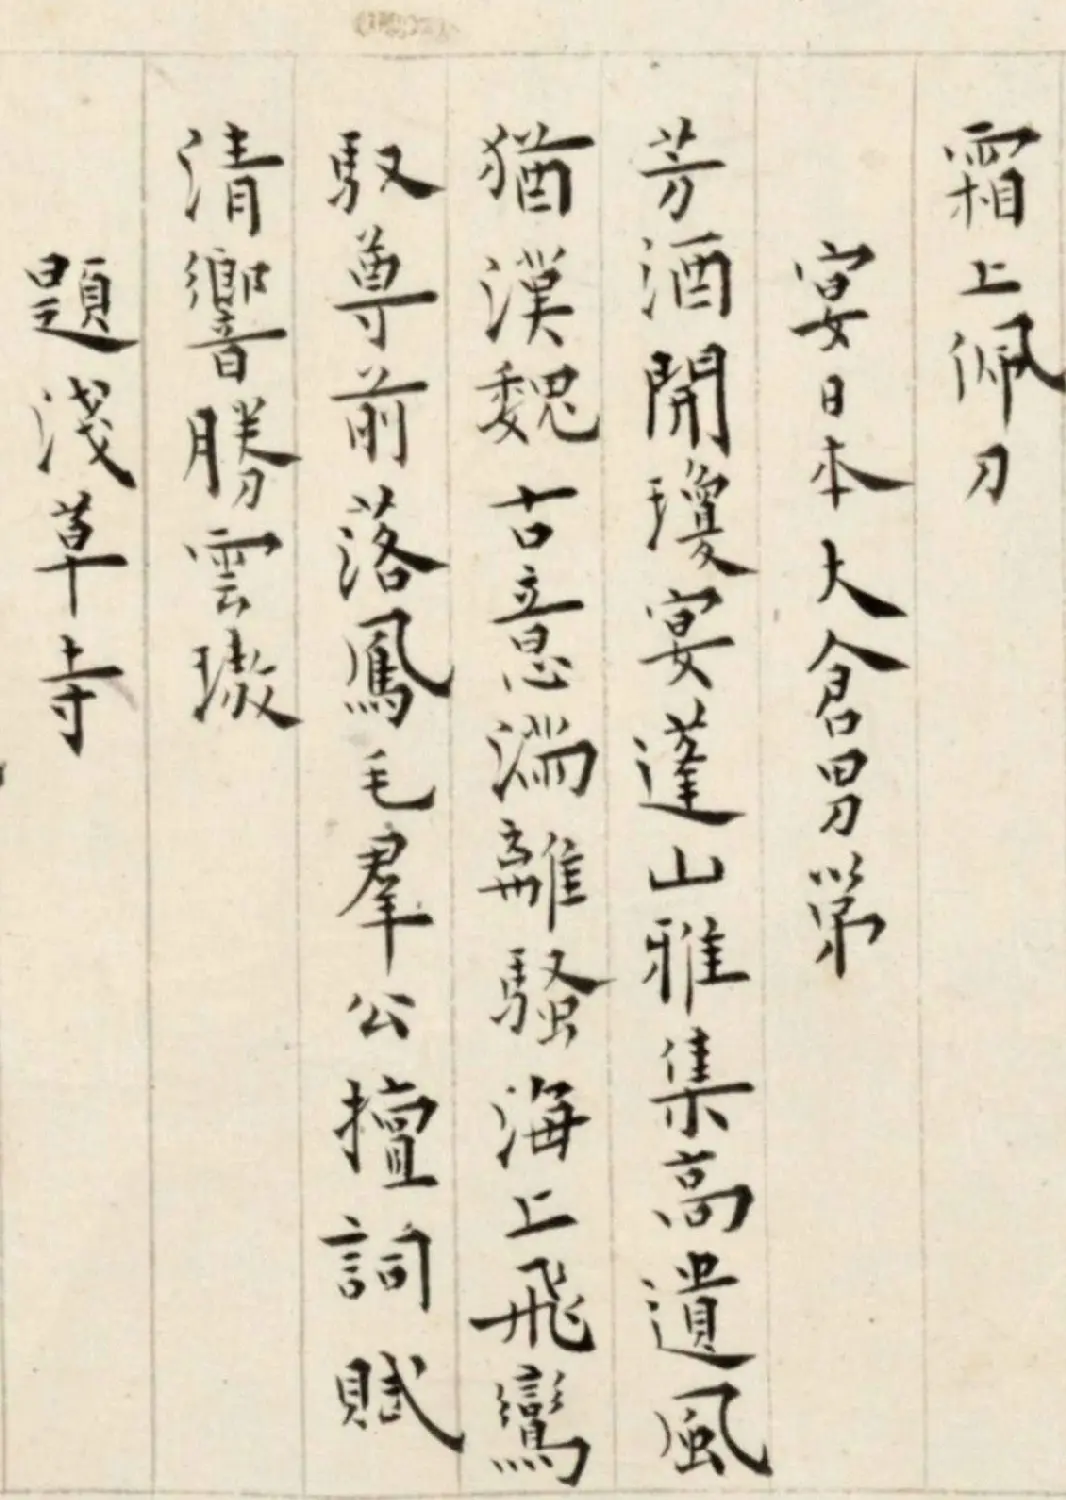 霜上佩刀
宴日本大倉男第
芳酒開瓊宴蓬山雅集高遺風
猶漢魏古意滿離騷海上飛鸞
馭尊前落鳳毛羣公擅詞賦
清響勝雲璈
題淺草寺